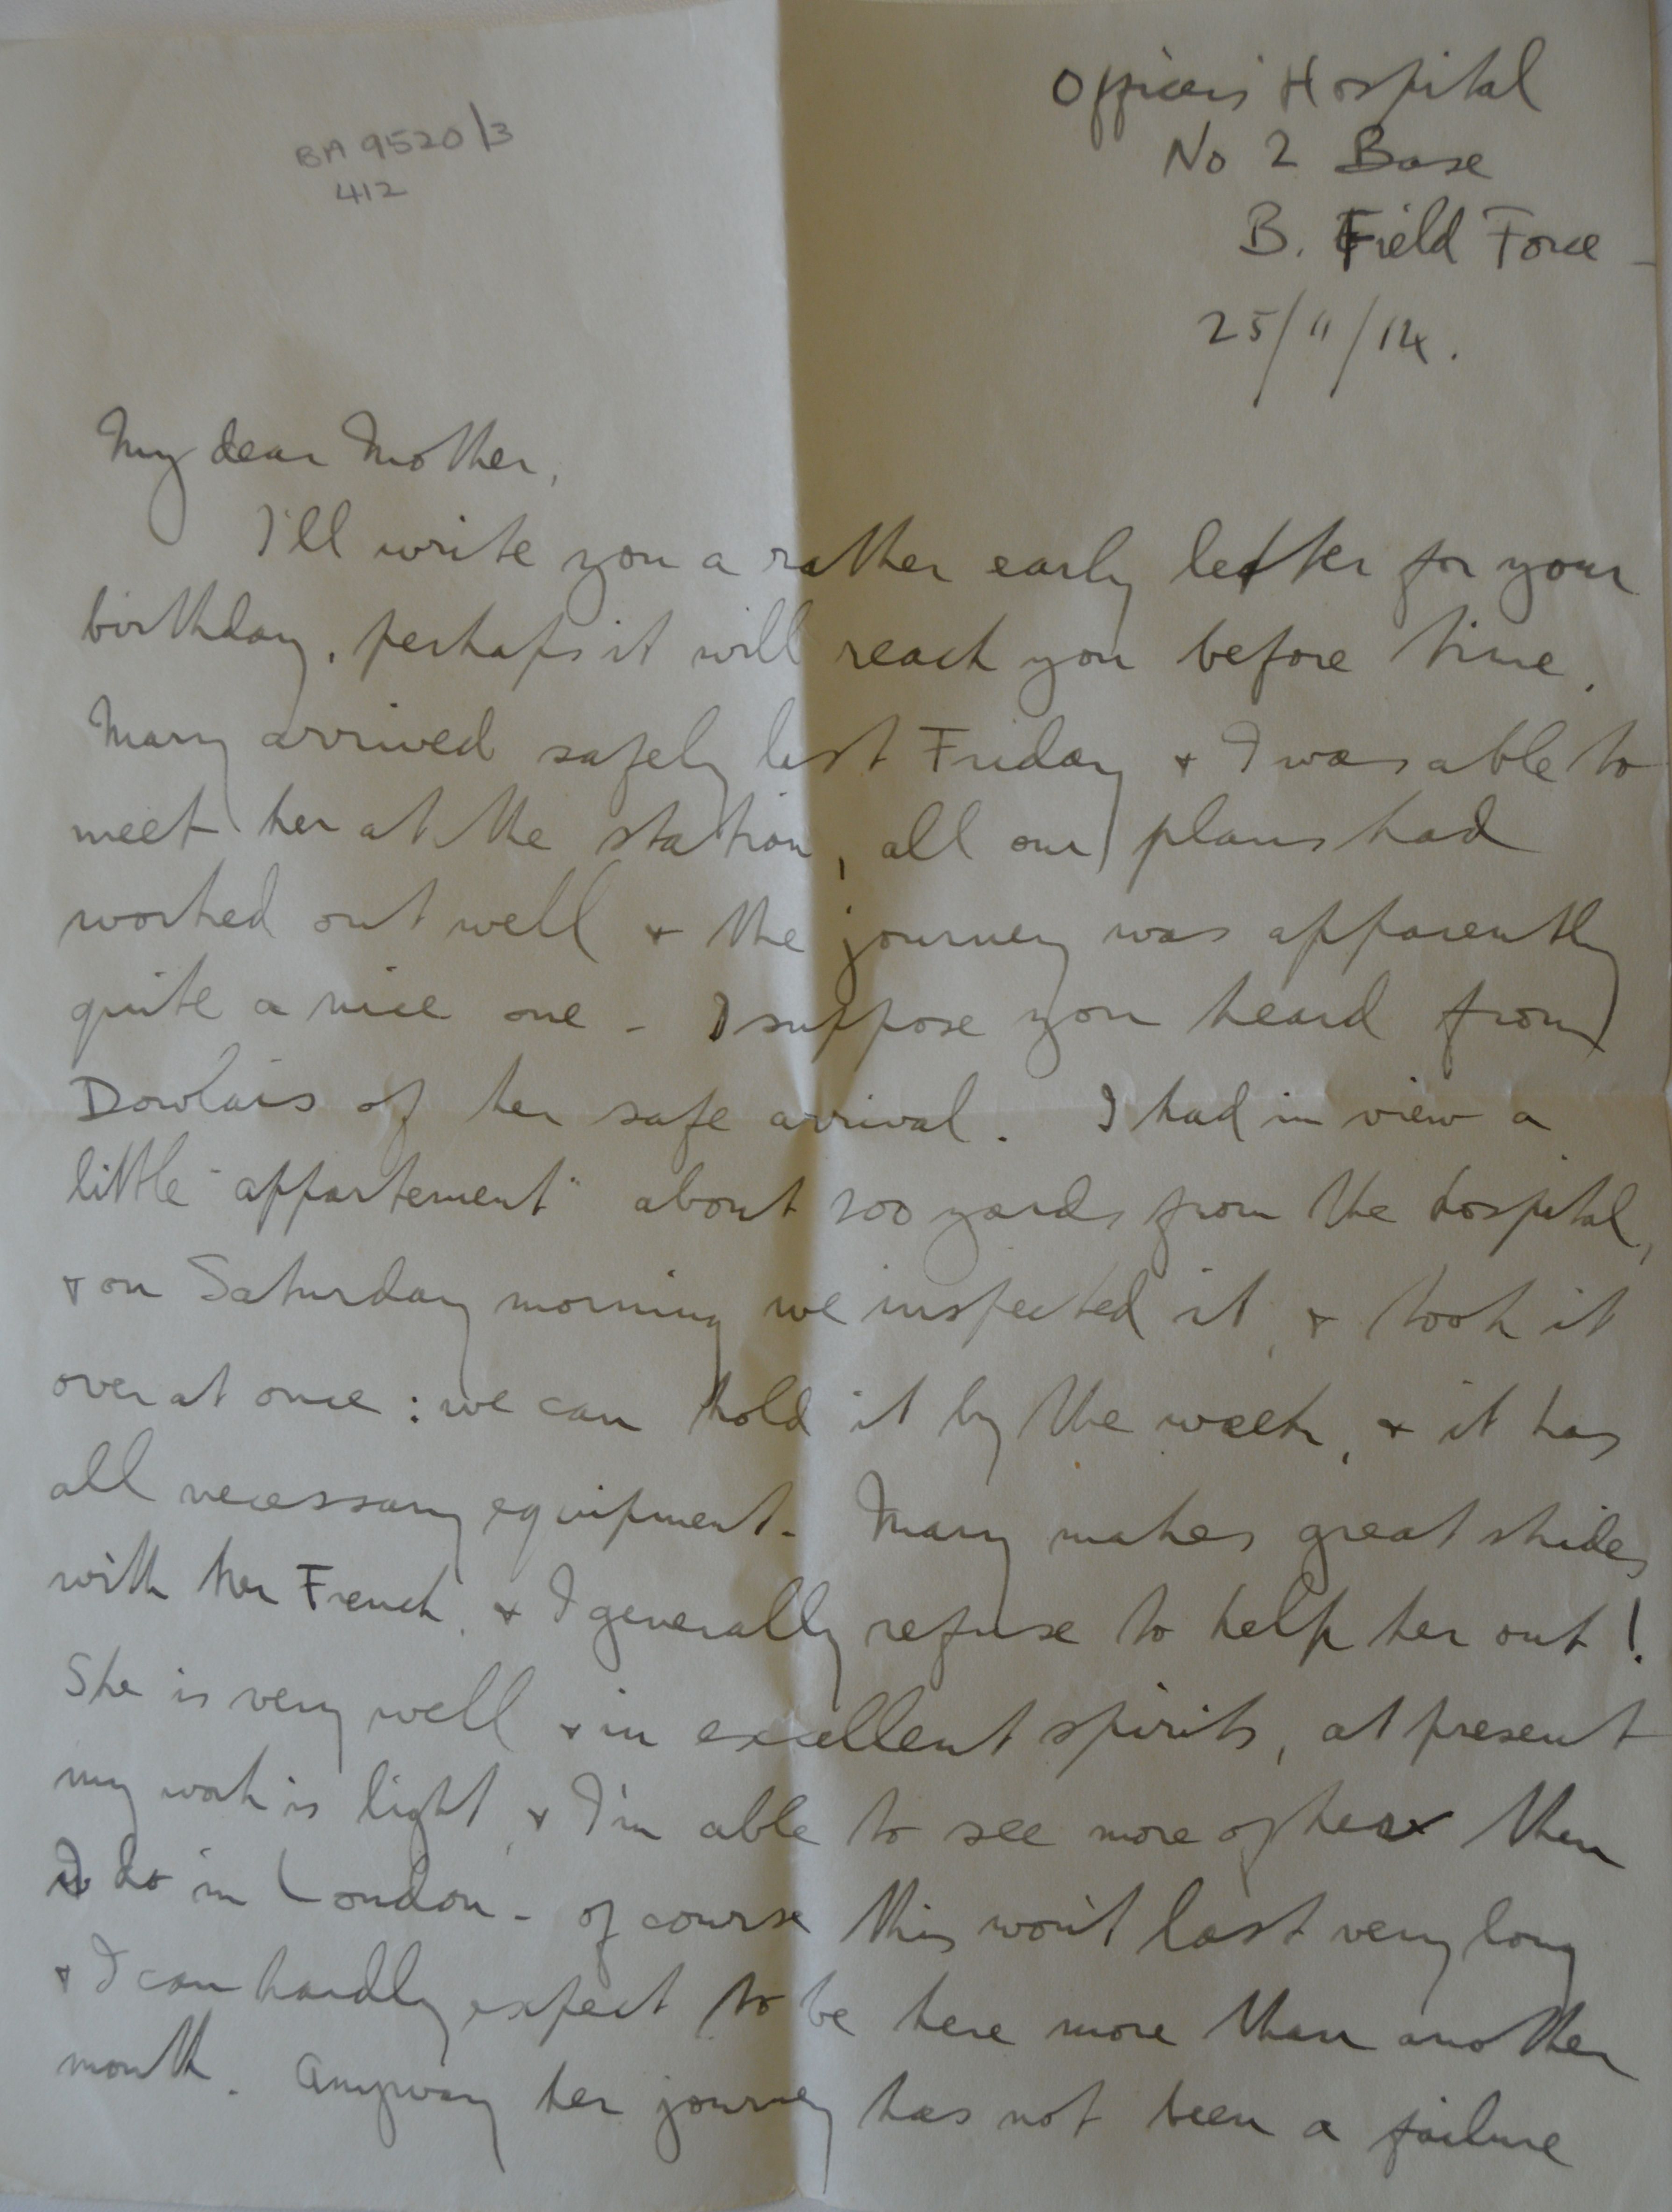 BA 9520/3
412
Officers Hospital
No 2 Base
B. Field Force -
25/11/14.
My dear Mother,
I'll write you a rather early letter for your
birthday, perhaps it will reach you before time.
Mary arrived safely last Friday & I was able to
meet her at the station, all our plans had
worked out well & the journey was apparently
quite a nice one - I suppose you heard from
Dowlais of her safe arrival. I had in view a
little "appartement" about 200 yards from the hospital,
& on Saturday morning we inspected it, & took it
over at once: we can hold it by the week, & it has
all necessary equipment - Mary makes great strides
with her French, & I generally refuse to help her out!
She is very well & in excellent spirits, at present
my work is light, & I'm able to see more of her than
I do in London - of course this won't last very long
& I can hardly expect to be here more than another
month. Anyway her journey has not been a failure